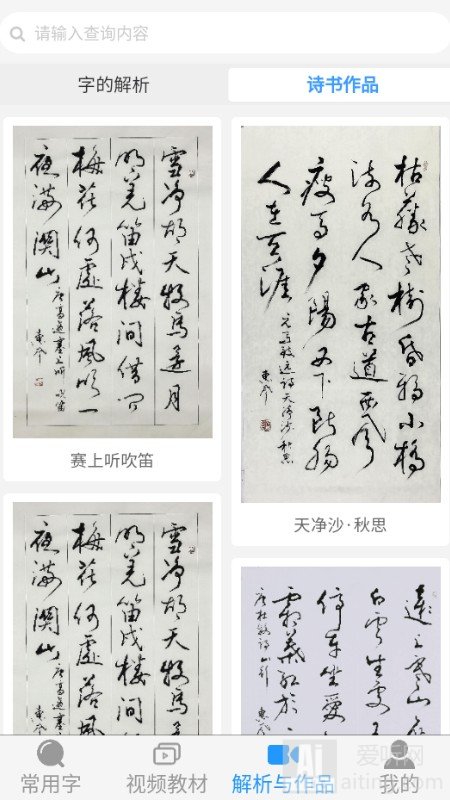 请输入查询内容
字的解析
诗书作品
雪净胡天牧马还月
明羌笛戍楼间借问
梅花何處落風吹一
夜满関山
唐高適塞上听吹笛
赛上听吹笛
枯藤老树昏鸦小橋
流水人家古道西风
瘦马夕陽西下断肠
人在天涯
元马致远詞天净沙秋思
天净沙·秋思
雪净胡天牧马还月
明羌笛戍楼间借问
梅花何處落風吹一
夜满関山
唐高適
遠上寒山石
白雲生處
停車坐愛
霜葉紅於
唐杜牧詩山行
常用字
视频教材
解析与作品
我的
Ai
爱听网
aitin